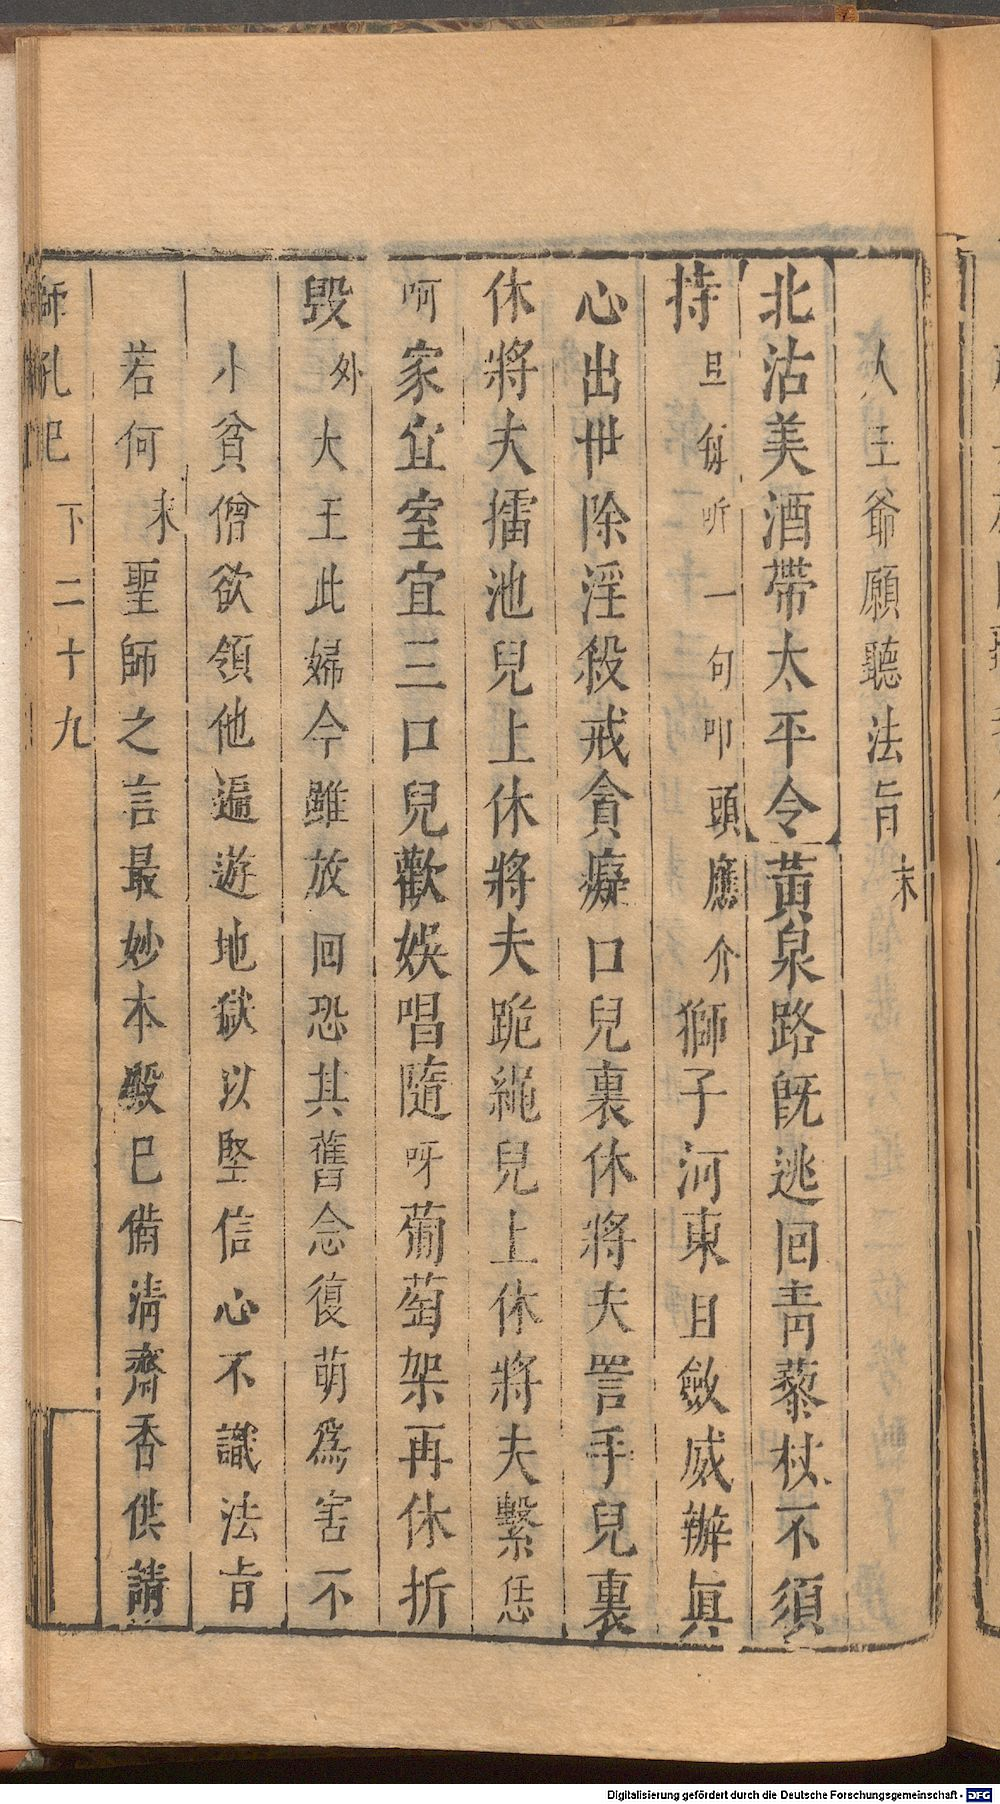 人王爺願聽法旨末
北沽美酒帶太平令黃泉路旣逃回靑藜杖不須
持旦〡听一句叩頭應介獅子河東且斂威辦眞
心出世除淫殺戒貪癡口兒裏休將夫詈手兒裏
休將夫擂池兒上休將夫跪繩兒上休將夫繫恁
呵家宜室宜三口兒歡娛唱隨呀葡萄架再休折
毁外大王此婦今雖放回恐其舊念復萌爲害不
小貧僧欲領他遍遊地獄以堅信心不識法旨
若何末聖師之言最妙本殿已備淸齋香供請
師乳記
下二十九
Digitalisierung gefördert durch die Deutsche Forschungsgemeinschaft - DFG